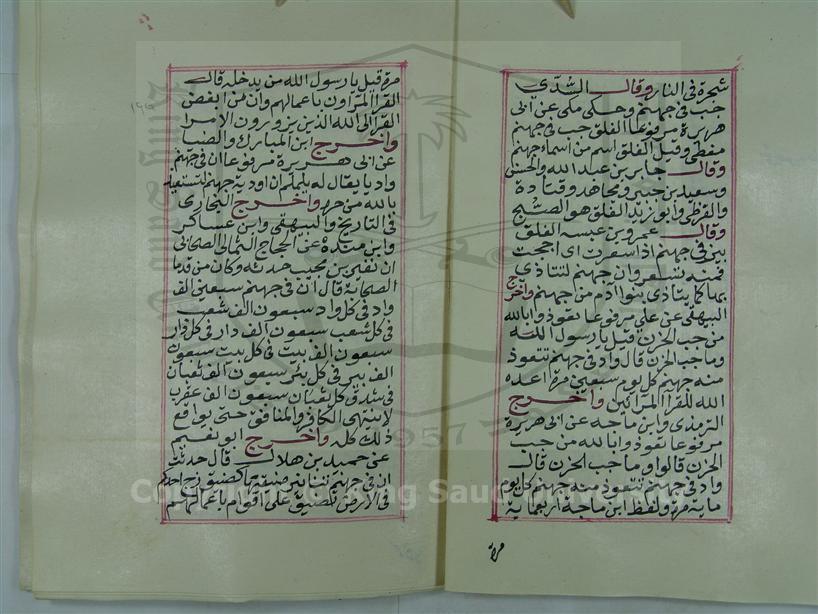 شجرة في النار وقال السّدّي
جب في جهنم وحكى مكي عن ابي
هريرة مرفوعا الفلق جب في جهنم
مغطى وقيل الفلق اسم من اسماء جهنم
وقال جابر بن عبد الله والحسن
وسعيد بن جبير ومجاهد وقتادة
والقرظي وابو زيد الفلق هو الصبح
وقال عمرو بن عبسه الفلق
بير في جهنم اذا سعرت اى اججت
فمنه تسعر وان جهنم لتتاذي
بها كما يتاذى بنوا آدم من جهنم واخرج
البيهقى عن علي مرفوعا تعوذوا بالله
من جب الحزن قيل يا رسول الله
وما جب الحزن قال واد في جهنم تتعوذ
منه جهنم كل يوم سبعين مرة اعده
الله للقرا المرائين واخرج
الترمذى وابن ماجه عن ابى هريرة
مرفوعا تعوذوا بالله من جب
الحزن قالوا وما جب الحزن قال
واد في جهنم تتعوذ منه جهنم كل يوم
ماية مرة ولفظ ابن ماجة اربعماية
مرة
مرة قيل يا رسول الله من يدخله قال
القرا المراون باعمالهم وان من ابغض
القرا الى الله الذين يزورون الامرا
واخرج ابن المبارك والضيا
عن ابى هريرة مرفوعا ان في جهنم
واديا يقال له يلملم ان اودية جهنم لتستعيذ
بالله من حره واخرج البخارى
في التاريخ والبيهقى وابن عساكر
وابن مندة عن الحجاج الثمالى الصحابى
ان نفير بن مجيب حدثه وكان من قدما
الصحابة قال ان في جهنم سبعين الف
واد في كل واد سبعون الف شعب
في كل شعب سبعون الف دار في كل دار
سبعون الف بيت في كل بيت سبعون
الف بير في كل بئر سبعون الف ثعبان
في شدق كل ثعبان سبعون الف عقرب
لا ينتهى الكافر والمنافق حتى يواقع
ذلك كله واخرج ابو نعيم
عن حميد بن هلال قال حدثت
ان في جهنم تنانير ضيقها كضيق زج احدكم
في الارض تضيق على اقوام باعمالهم
Copyright © King Saud University
1957